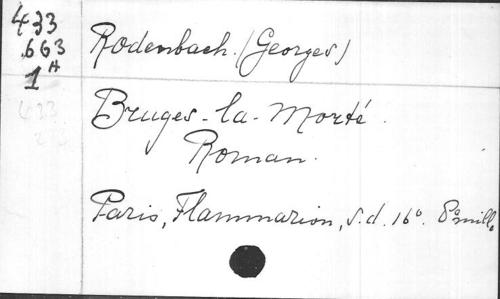 433
663
1A
Rodenbach. (Georges)
Bruges-la-Morté.
Roman.
Paris, Flammarion, s.d. 16°. 8°mill.